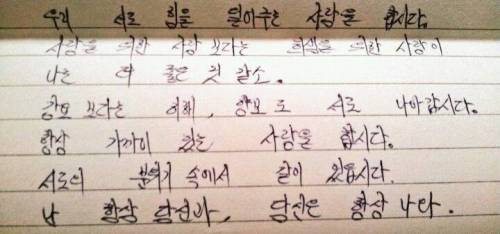 우리 서로 힘을 덜어주는 사랑을 합시다.
사랑을 위한 사랑 보다는 희생을 위한 사랑이
나는 더 좋은 것 같소.
강요 보다는 이해, 양보로 서로 나아갑시다.
항상 가까이 있는 사랑을 합시다.
서로의 분위기 속에서 같이 있읍시다.
난 항상 당신과, 당신은 항상 나와.